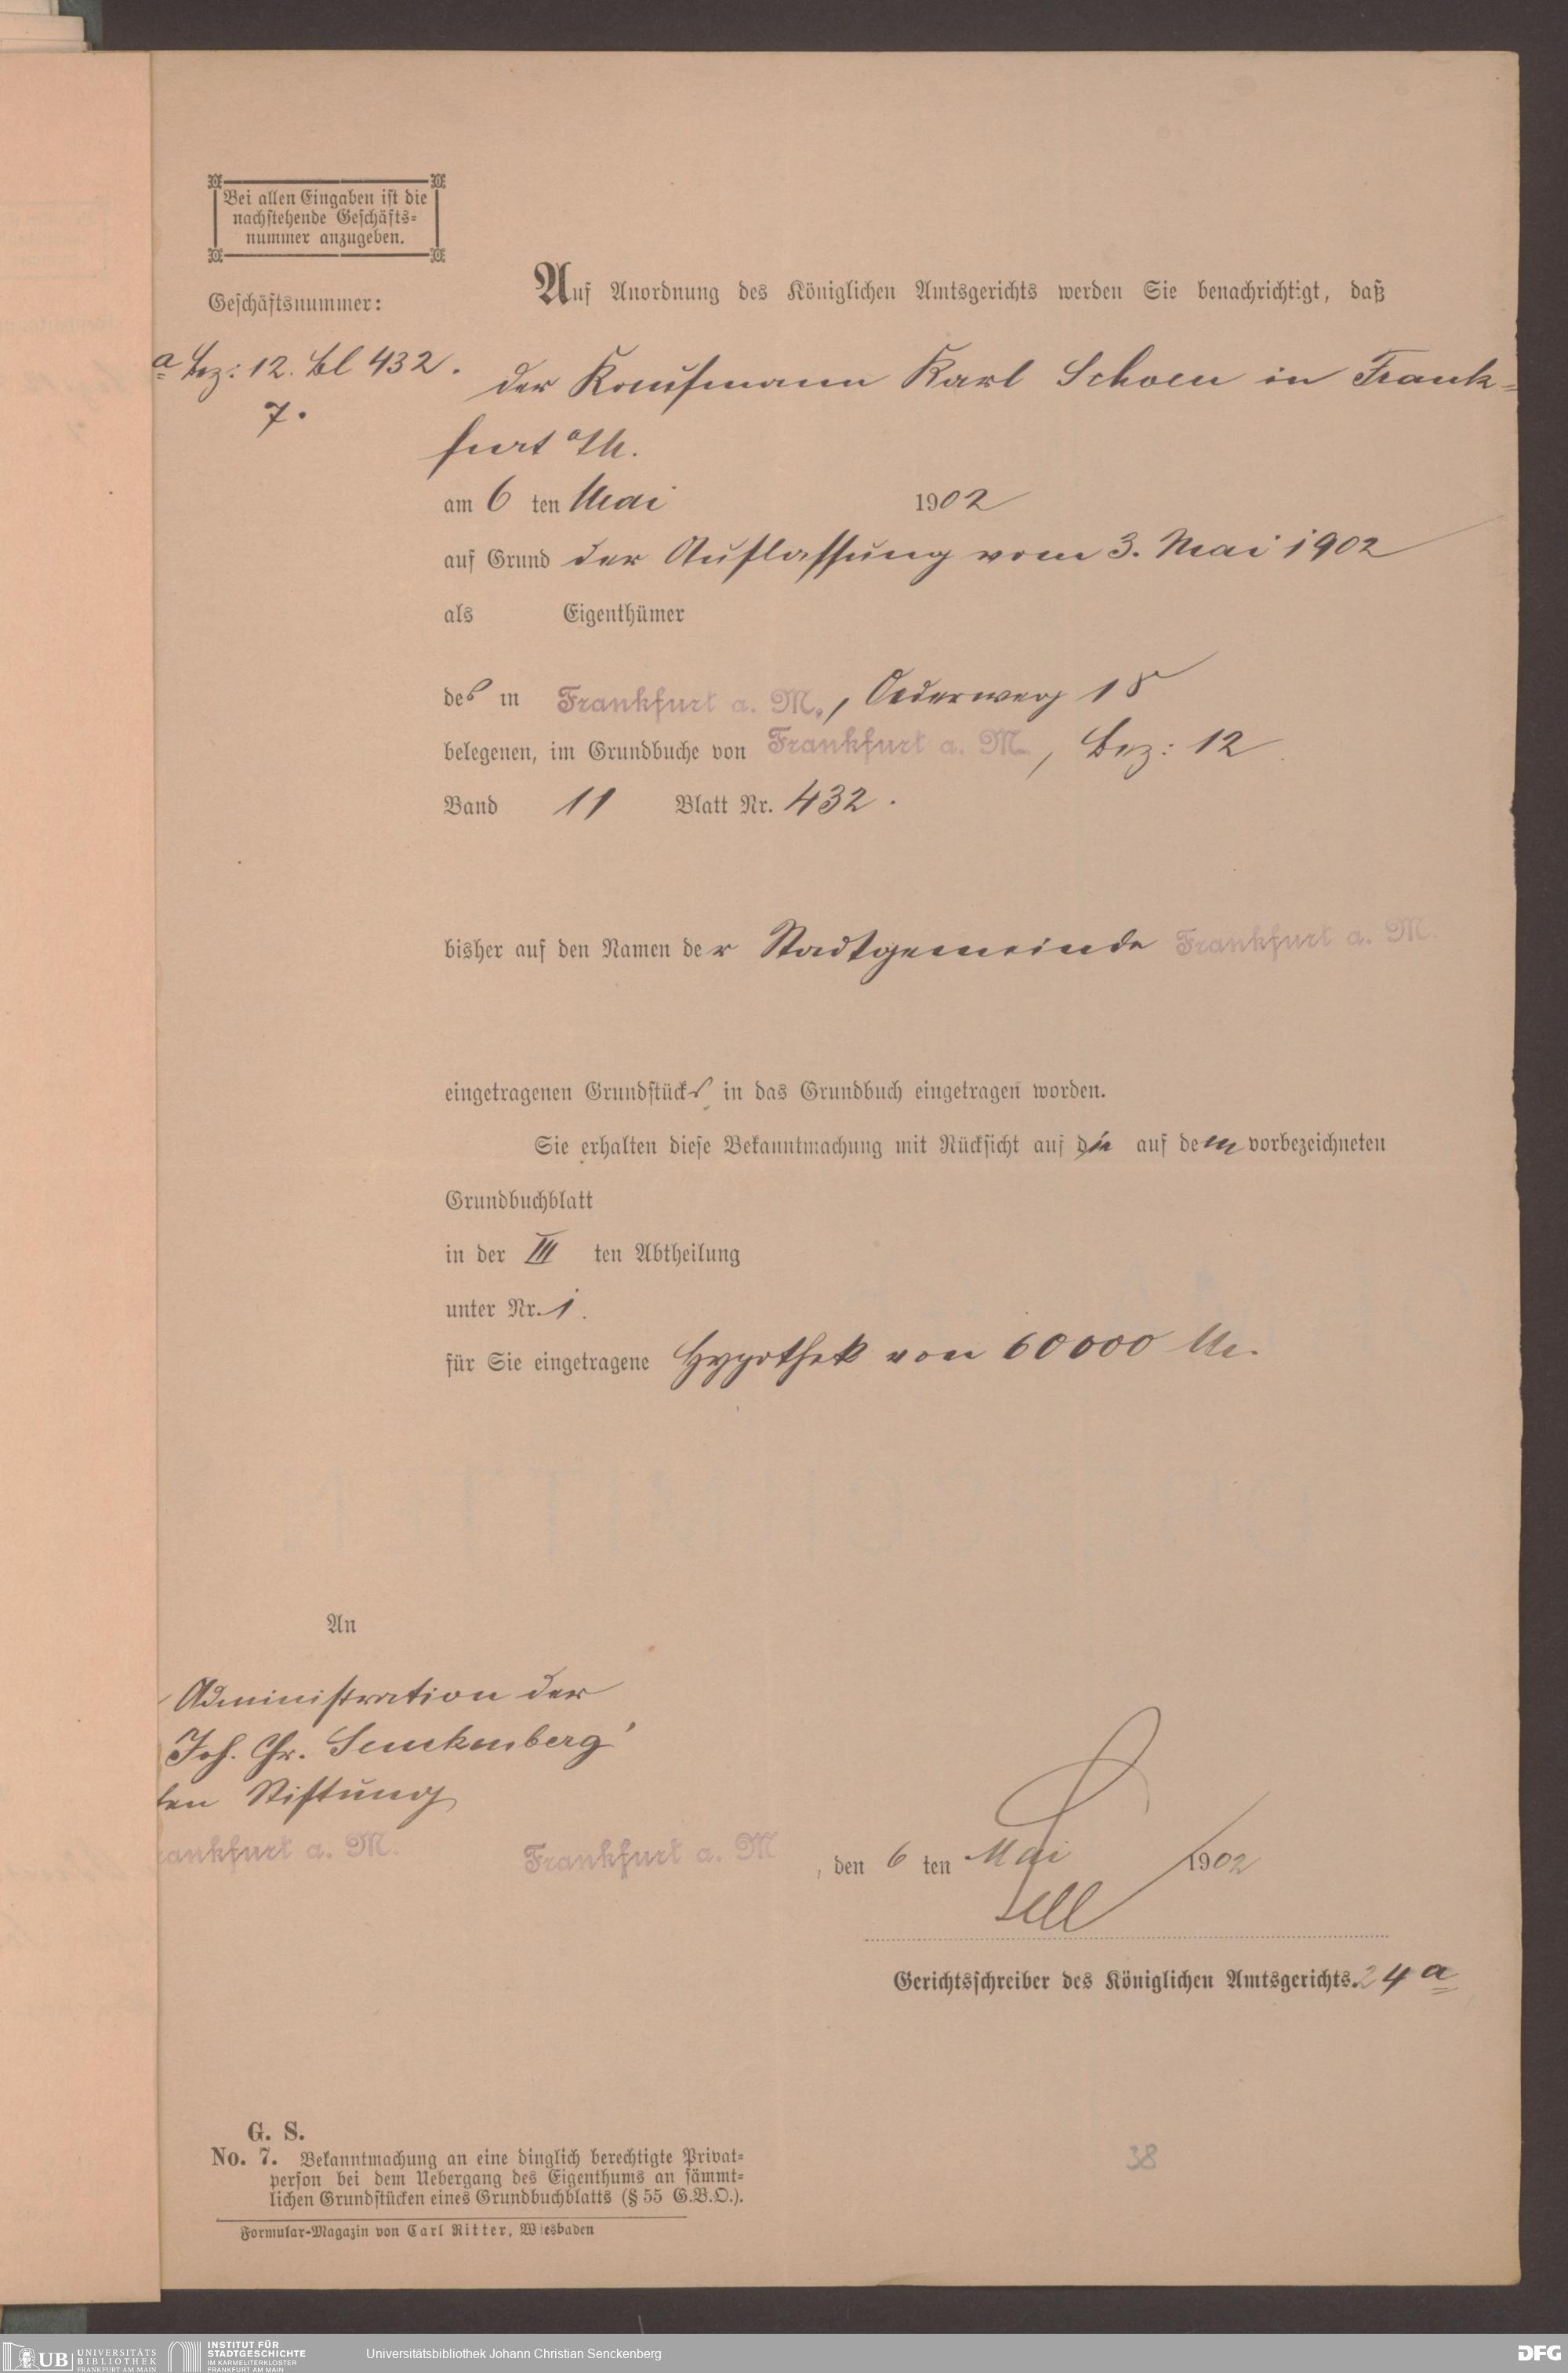 Bei allen Eingaben iſt die
nachſtehende Geſchäfts=
nummer anzugeben.
Geſchäftsnummer:
a Bez: 12. Bl 432.
7.
Auf Anordnung des Königlichen Amtsgerichts werden Sie benachrichtigt, daß
der Kaufmann Karl Schoen in Frank=
furt a/M.
am 6 ten Mai 1902
auf Grund der Auflaſſung vom 3. Mai 1902
als Eigenthümer
des in Frankfurt a. M., Oederweg 15
belegenen, im Grundbuche von Frankfurt a. M., Bez: 12
Band 11 Blatt Nr. 432.
bisher auf den Namen der Stadtgemeinde Frankfurt a. M.
eingetragenen Grundſtücks in das Grundbuch eingetragen worden.
Sie erhalten dieſe Bekanntmachung mit Rückſicht auf die auf dem vorbezeichneten
Grundbuchblatt
in der III ten Abtheilung
unter Nr. 1.
für Sie eingetragene Hypothek von 60000 M.
An
Adminiſtration der
Joh. Chr. Senckenberg'
ſen Stiftung
ankfurt a. M.
Frankfurt a. M, den 6 ten Mai 1902
Gerichtsſchreiber des Königlichen Amtsgerichts. 24a
G. S.
No. 7. Bekanntmachung an eine dinglich berechtigte Privat=
perſon bei dem Uebergang des Eigenthums an ſämmt=
lichen Grundſtücken eines Grundbuchblatts (§ 55 G.B.O.).
Formular-Magazin von Carl Ritter, Wiesbaden
38
UB UNIVERSITÄTS
BIBLIOTHEK
FRANKFURT AM MAIN
INSTITUT FÜR
STADTGESCHICHTE
IM KARMELITERKLOSTER
FRANKFURT AM MAIN
Universitätsbibliothek Johann Christian Senckenberg
DFG